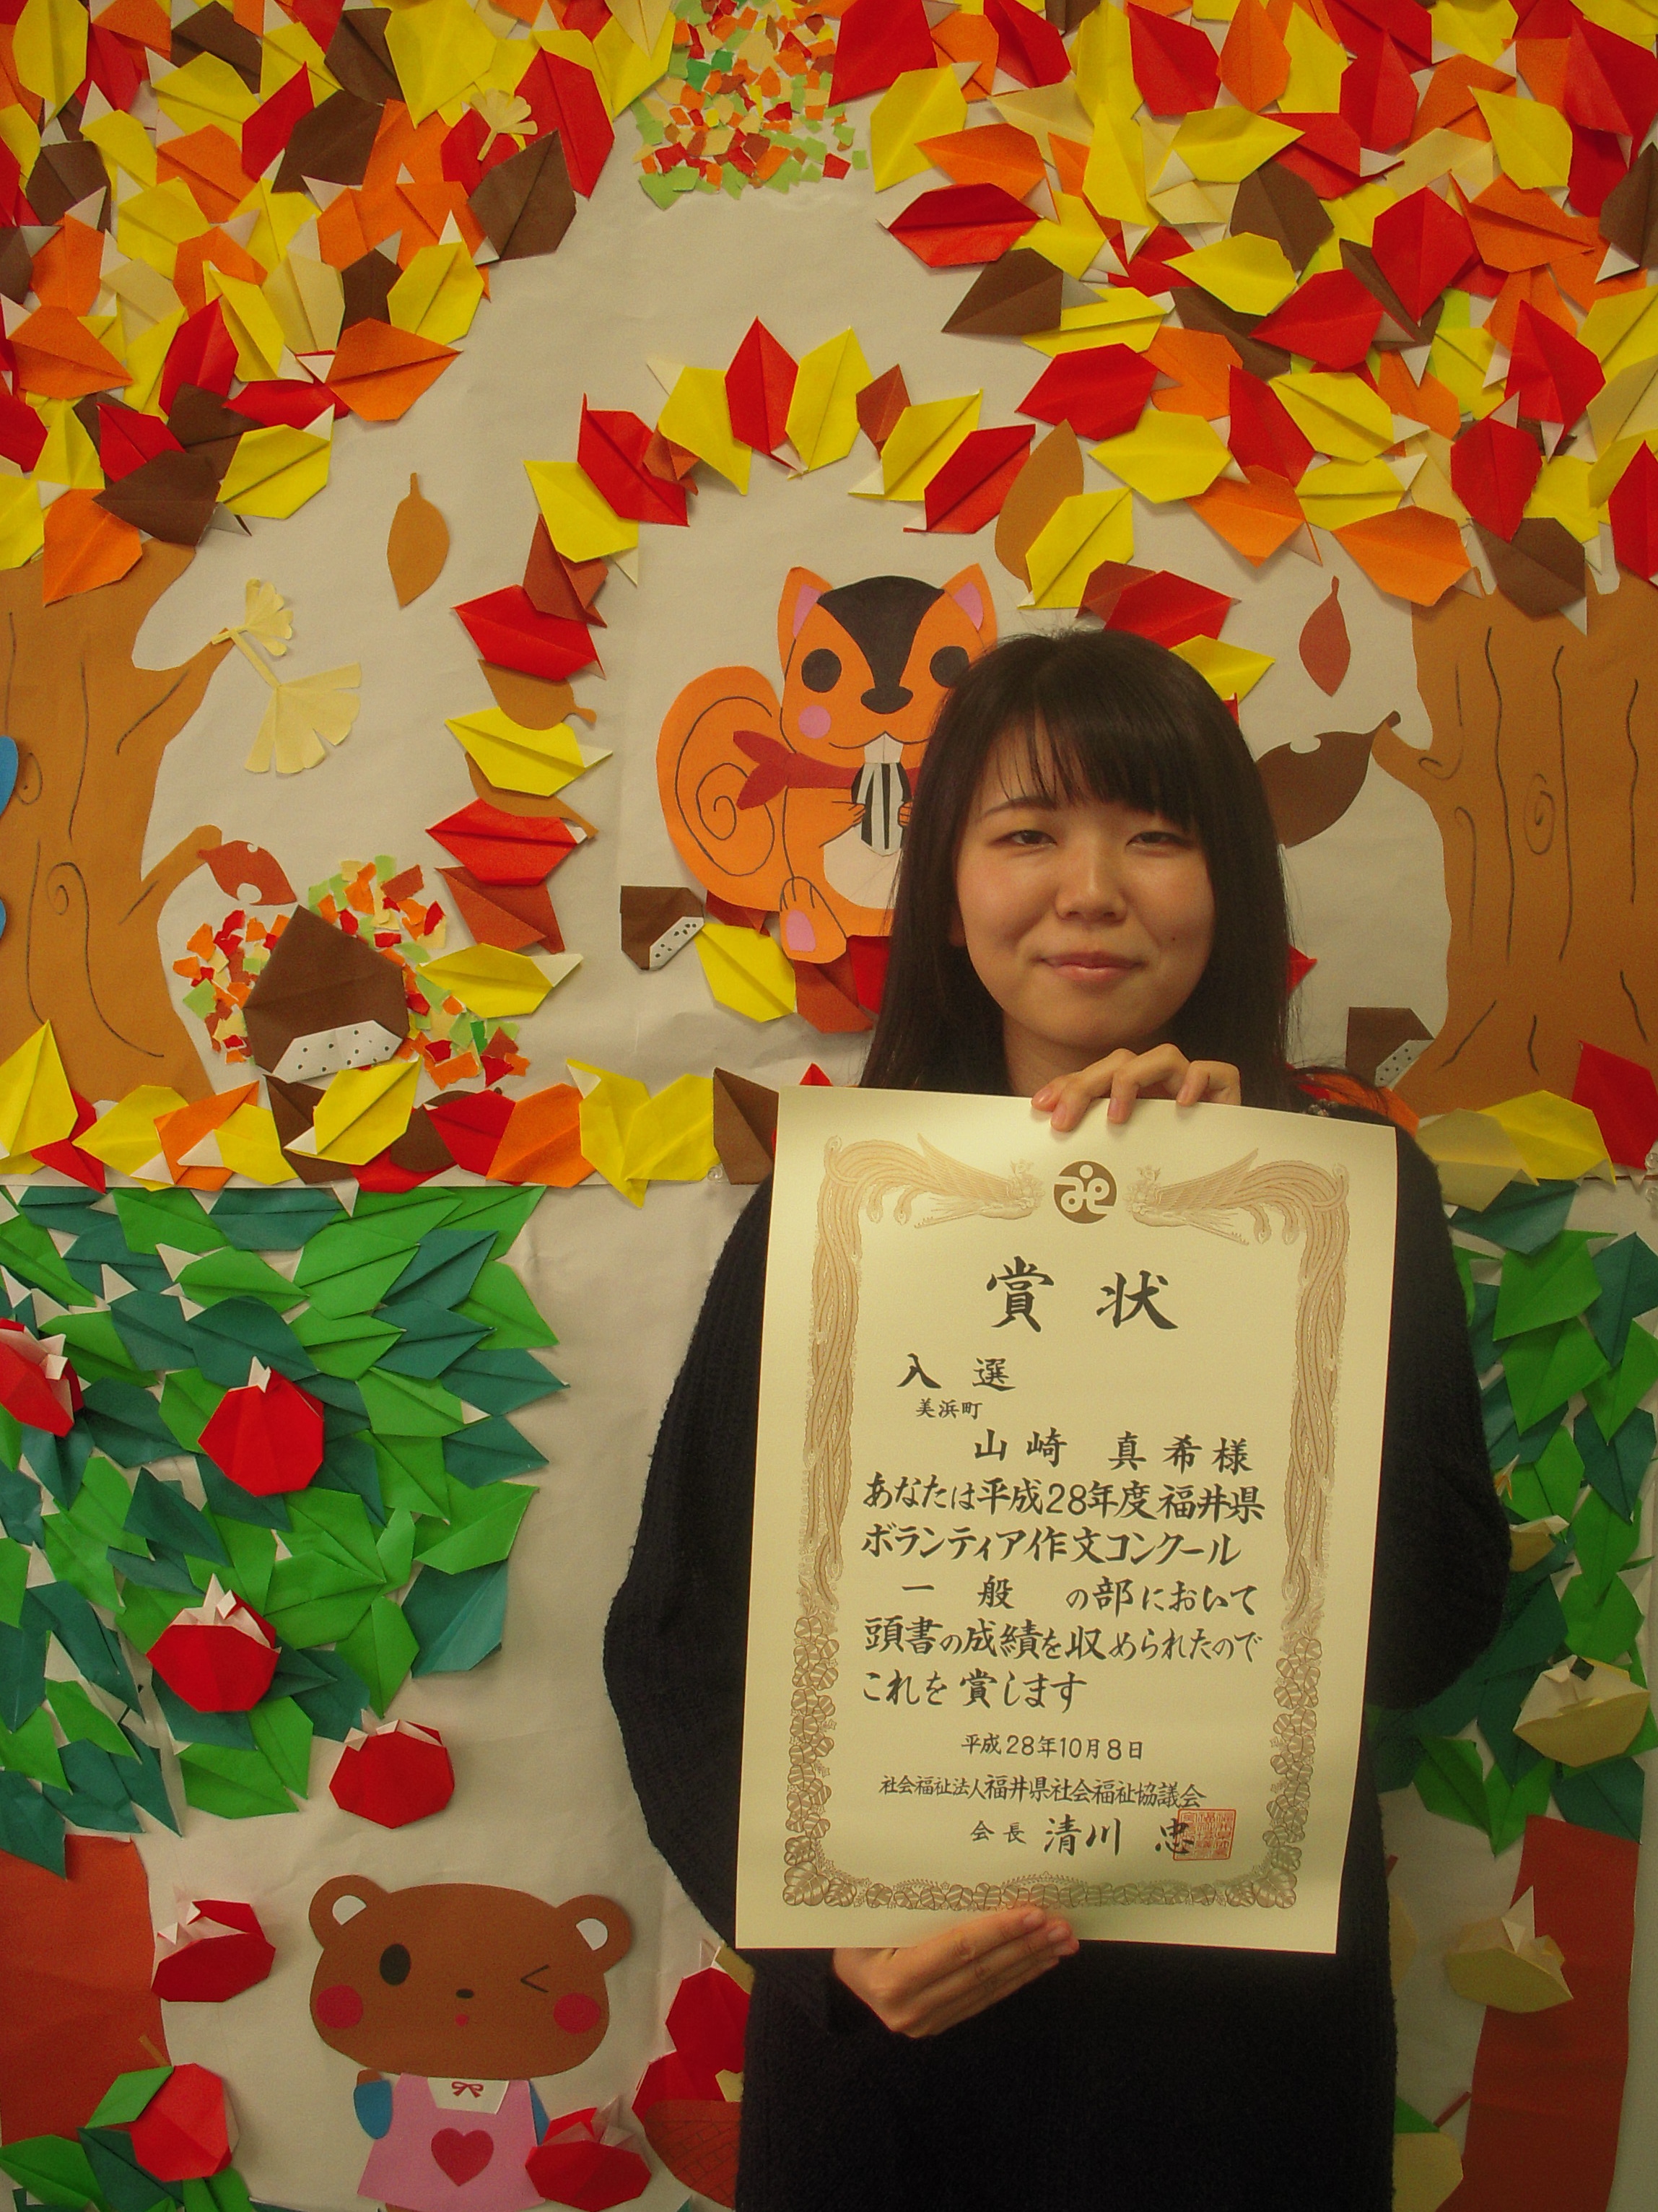 賞状
入選
美浜町
山崎 真希様
あなたは平成28年度福井県
ボランティア作文コンクール
一般 の部において
頭書の成績を収められたので
これを賞します
平成28年10月8日
社会福祉法人福井県社会福祉協議会
会長 清川 忠